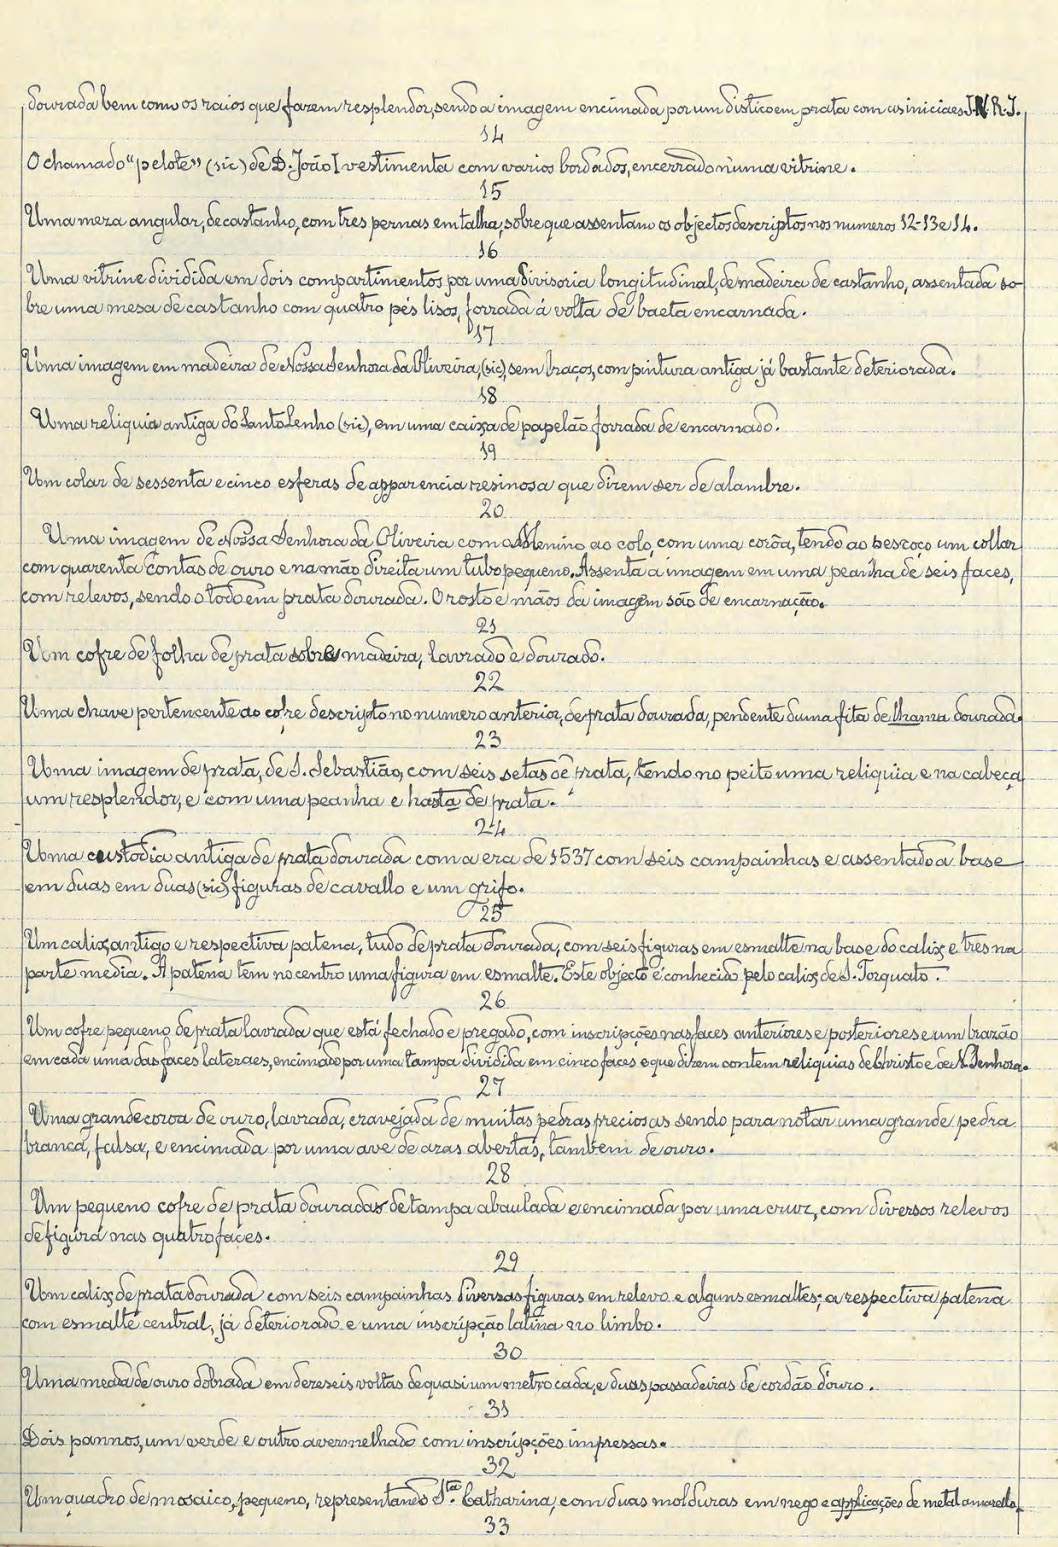 dourada bem como os raios que fazem resplendor, sendo a imagem encimada por um distico em prata com as iniciaes J.N.R.J.
14
O chamado "pelote" (sic) de D. João I vestimenta com varios bordados, encerrado n'uma vitrine.
15
Uma meza angular, de castanho, com tres pernas em talha, sobre que assentam os objectos descriptos nos numeros 12-13 e 14.
16
Uma vitrine dividida em dois compartimentos por uma divisoria longitudinal, de madeira de castanho, assentada so-
bre uma mesa de castanho com quatro pés lisos, forrada á volta de baeta encarnada.
17
Uma imagem em madeira de Nossa Senhora da Oliveira, (sic), sem braços, com pintura antiga já bastante deteriorada.
18
Uma reliquia antiga do Santo Lenho (sic), em uma caixa de papelão forrada de encarnado.
19
Um colar de sessenta e cinco esferas de apparencia resinosa que dizem ser de alambre.
20
Uma imagem de Nossa Senhora da Oliveira com o Menino ao colo, com uma corôa, tendo ao pescoço um collar
com quarenta contas de ouro e na mão direita um tubo pequeno. Assenta a imagem em uma peanha de seis faces,
com relevos, sendo o todo em prata dourada. O rosto e mãos da imagem são de encarnação.
21
Um cofre de folha de prata sobre madeira, lavrado e dourado.
22
Uma chave pertencente ao cofre descripto no numero anterior, de prata dourada, pendente duma fita de lhama dourada.
23
Uma imagem de prata, de S. Sebastião, com seis setas de prata, tendo no peito uma reliquia e na cabeça
um resplendor, e com uma peanha e hasta de prata.
24
Uma custodia antiga de prata dourada com a era de 1537 com seis campainhas e assentado a base
em duas em duas (sic) figuras de cavallo e um grifo.
25
Um calix antigo e respectiva patena, tudo de prata dourada, com seis figuras em esmalte na base do calix e tres na
parte media. A patena tem no centro uma figura em esmalte. Este objecto é conhecido pelo calix de S. Torquato.
26
Um cofre pequeno de prata lavrada que está fechado e pregado, com inscripções nas faces anteriores e posteriores e um brazão
em cada uma das faces lateraes, encimado por uma tampa dividida em cinco faces e que dizem contem reliquias de Christo e de N. Senhora.
27
Uma grande coroa de ouro, lavrada, cravejada de muitas pedras preciosas sendo para notar uma grande pedra
branca, falsa, e encimada por uma ave de azas abertas, tambem de ouro.
28
Um pequeno cofre de prata dourada de tampa abaulada e encimada por uma cruz, com diversos relevos
de figura nas quatro faces.
29
Um calix de prata dourada com seis campainhas diversas figuras em relevo e alguns esmaltes; a respectiva patena
com esmalte central, já deteriorado e uma inscripção latina no limbo.
30
Uma meada de ouro dobrada em dezeseis voltas de quasi um metro cada, e duas passadeiras de cordão d'ouro.
31
Dois pannos, um verde e outro avermelhado com inscripções impressas.
32
Um quadro de mosaico, pequeno, representando Sta. Catharina, com duas molduras em nego e applicações de metal amarello.
33